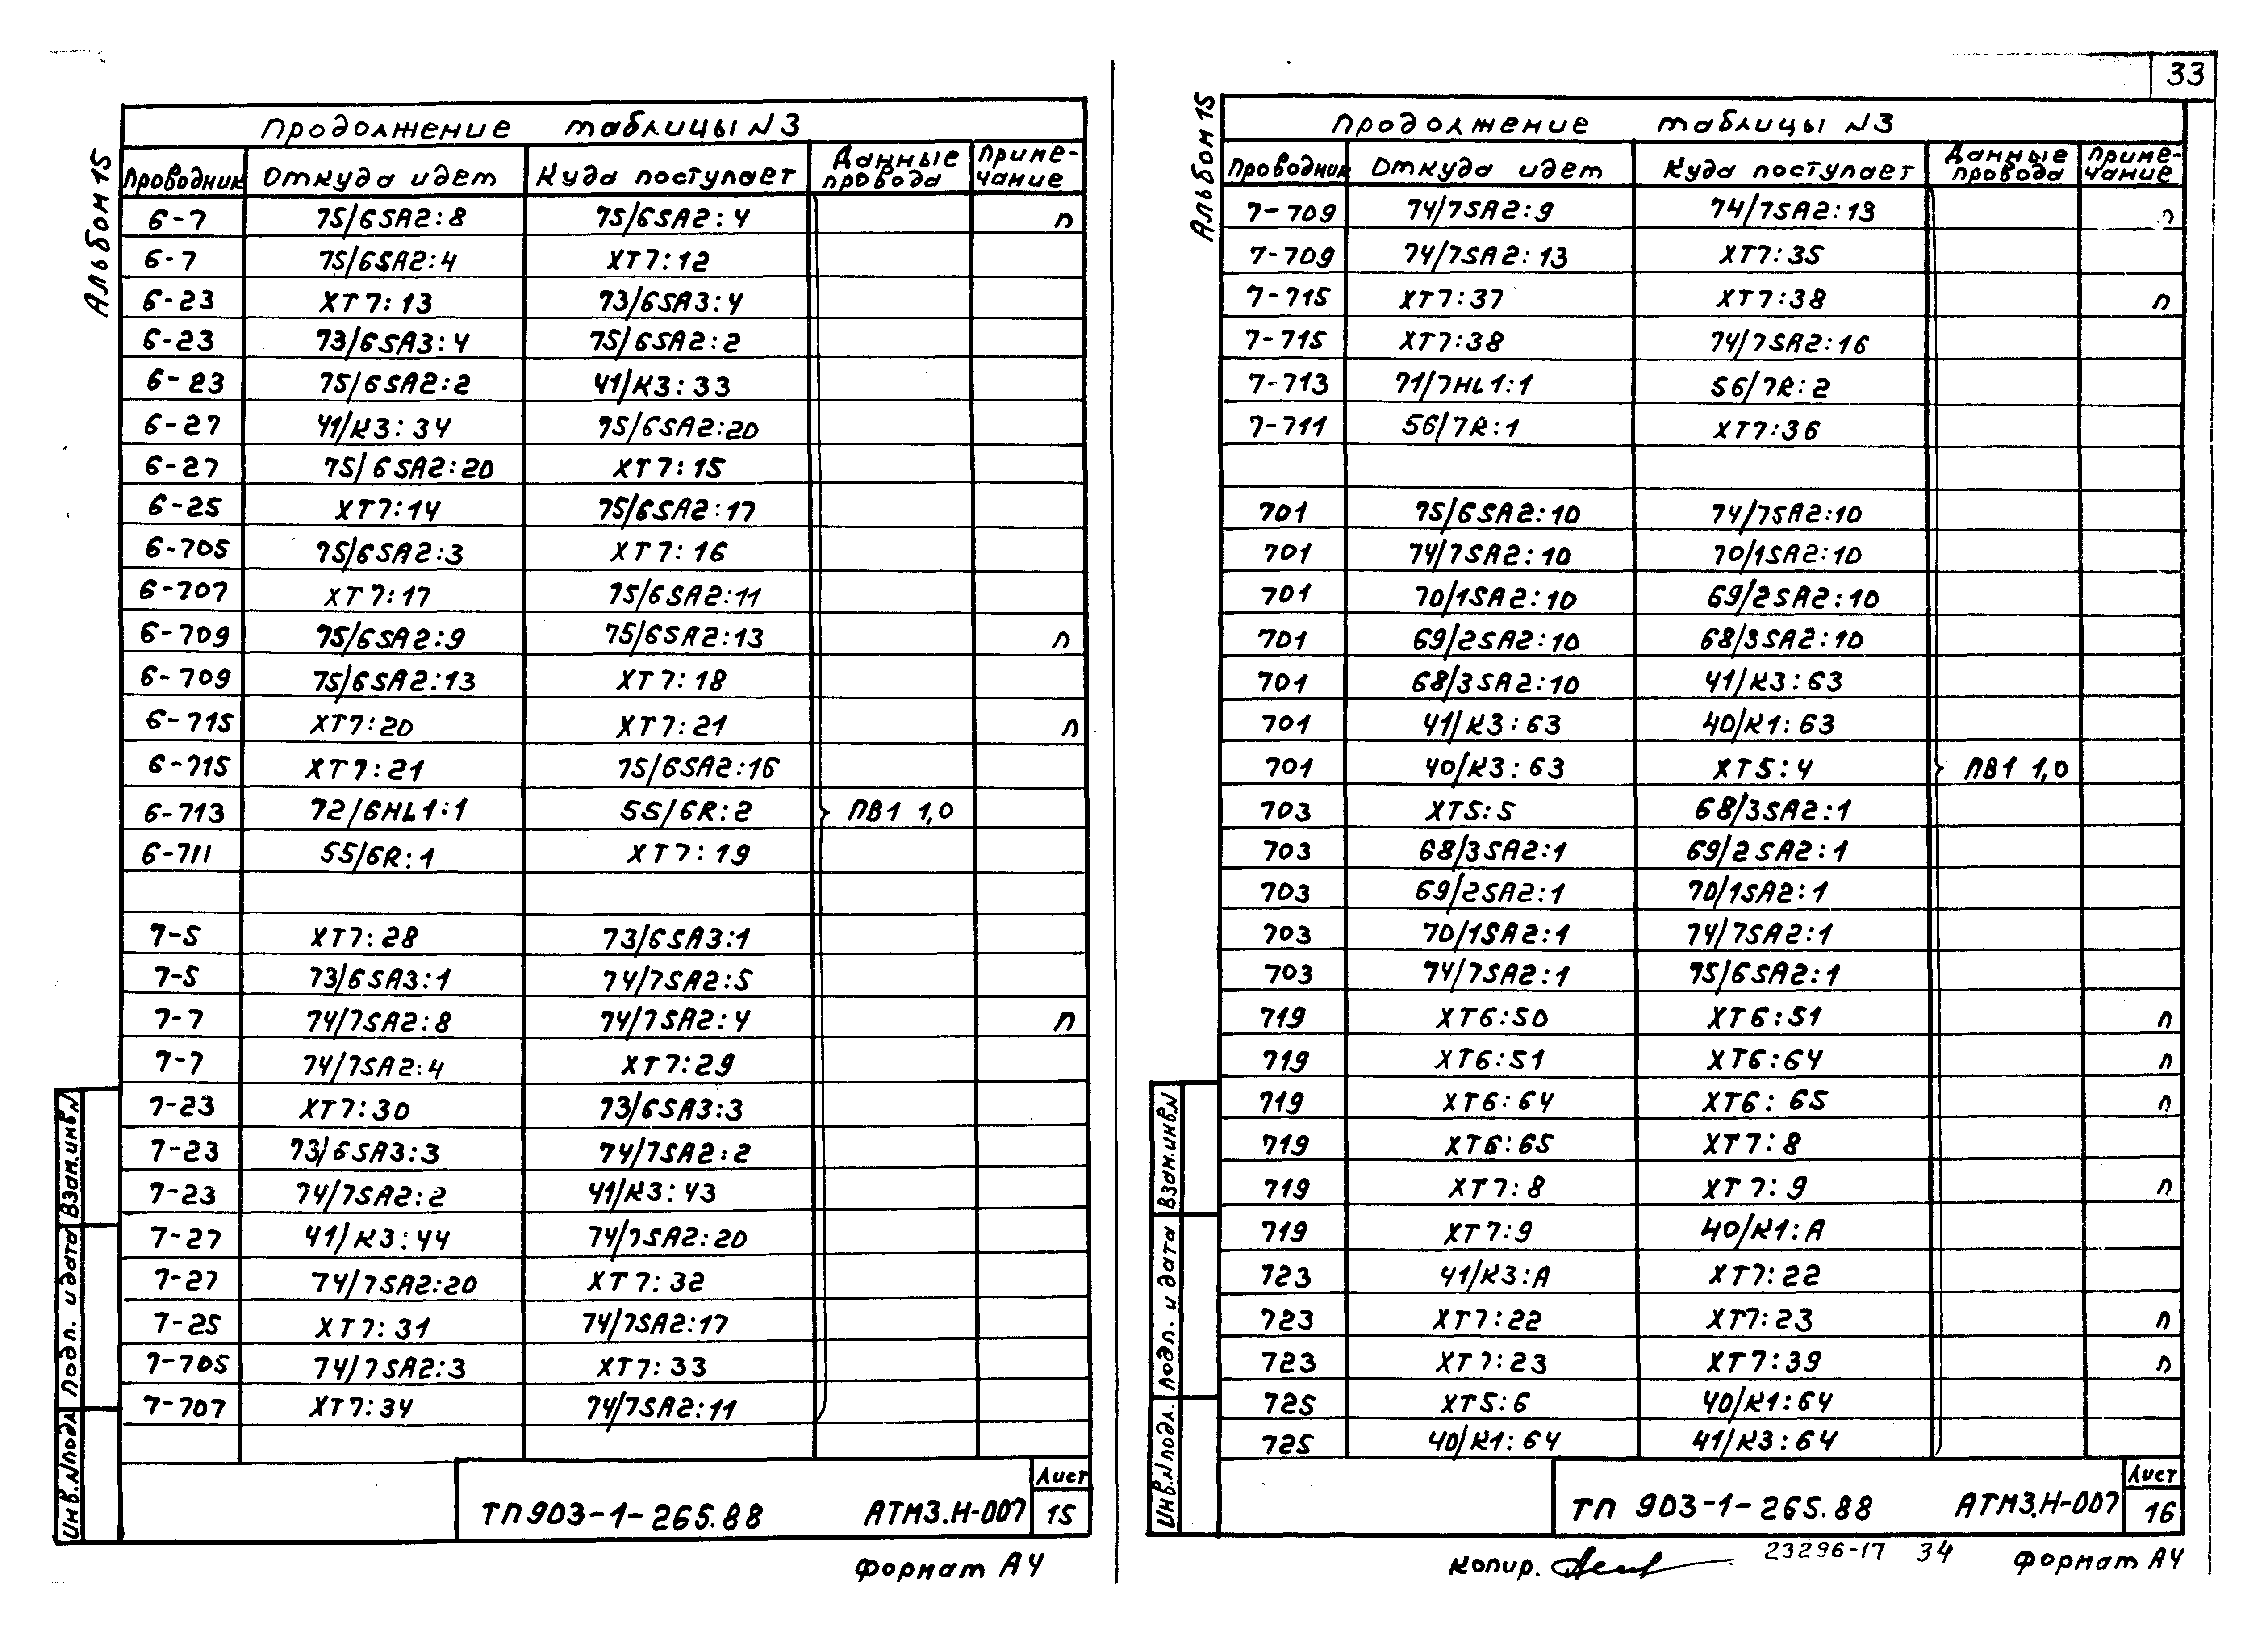 33
Альбом 15
Продолжение таблицы N3
Проводник Откуда идет Куда поступает Данные провода Приме-чание
6-7 75/6SA2:8 75/6SA2:4 п
6-7 75/6SA2:4 XT7:12
6-23 XT7:13 73/6SA3:4
6-23 73/6SA3:4 75/6SA2:2
6-23 75/6SA2:2 41/К3:33
6-27 41/К3:34 75/6SA2:20
6-27 75/6SA2:20 XT7:15
6-25 XT7:14 75/6SA2:17
6-705 75/6SA2:3 XT7:16
6-707 XT7:17 75/6SA2:11
6-709 75/6SA2:9 75/6SA2:13 п
6-709 75/6SA2:13 XT7:18
6-715 XT7:20 XT7:21 п
6-715 XT7:21 75/6SA2:16
6-713 72/6HL1:1 55/6R:2 ПВ1 1,0
6-711 55/6R:1 XT7:19
7-5 XT7:28 73/6SA3:1
7-5 73/6SA3:1 74/7SA2:5
7-7 74/7SA2:8 74/7SA2:4 п
7-7 74/7SA2:4 XT7:29
7-23 XT7:30 73/6SA3:3
7-23 73/6SA3:3 74/7SA2:2
7-23 74/7SA2:2 41/К3:43
7-27 41/К3:44 74/7SA2:20
7-27 74/7SA2:20 XT7:32
7-25 XT7:31 74/7SA2:17
7-705 74/7SA2:3 XT7:33
7-707 XT7:34 74/7SA2:11
Взам.инв.N
Подп. и дата
Инв.N подл.
ТП 903-1-265.88 АТМ3.Н-007 Лист 15
Формат А4
Альбом 15
Продолжение таблицы N3
Проводник Откуда идет Куда поступает Данные провода Приме-чание
7-709 74/7SA2:9 74/7SA2:13 п
7-709 74/7SA2:13 XT7:35
7-715 XT7:37 XT7:38 п
7-715 XT7:38 74/7SA2:16
7-713 71/7HL1:1 56/7R:2
7-711 56/7R:1 XT7:36
701 75/6SA2:10 74/7SA2:10
701 74/7SA2:10 70/1SA2:10
701 70/1SA2:10 69/2SA2:10
701 69/2SA2:10 68/3SA2:10
701 68/3SA2:10 41/К3:63
701 41/К3:63 40/К1:63
701 40/К3:63 XT5:4 ПВ1 1,0
703 XT5:5 68/3SA2:1
703 68/3SA2:1 69/2SA2:1
703 69/2SA2:1 70/1SA2:1
703 70/1SA2:1 74/7SA2:1
703 74/7SA2:1 75/6SA2:1
719 XT6:50 XT6:51 п
719 XT6:51 XT6:64 п
719 XT6:64 XT6:65 п
719 XT6:65 XT7:8
719 XT7:8 XT7:9 п
719 XT7:9 40/К1:А
723 41/К3:А XT7:22
723 XT7:22 XT7:23 п
723 XT7:23 XT7:39 п
725 XT5:6 40/К1:64
725 40/К1:64 41/К3:64
Взам.инв.N
Подп. и дата
Инв.N подл.
ТП 903-1-265.88 АТМ3.Н-007 Лист 16
Копир. 23296-17 34 Формат А4